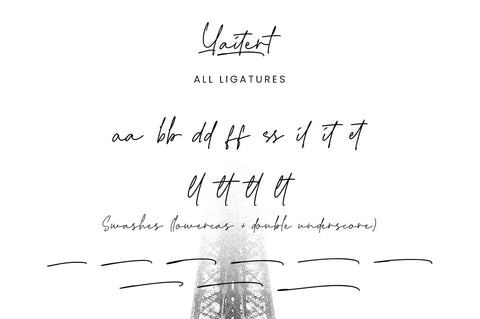 Yaitert
ALL LIGATURES
aa bb dd ff ss il it et
ll tt tl lt
Swashes (lowercas + double underscore)